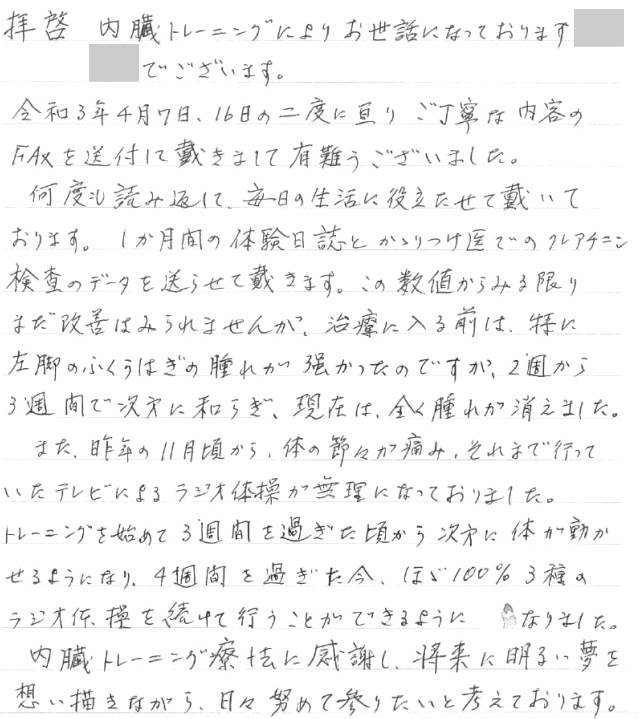 拝啓 内臓トレーニングによりお世話になっております
でございます。
令和3年4月7日、16日の二度に亘りご丁寧な内容の
FAXを送付して戴きまして有難うございました。
何度も読み返して、毎日の生活に役立たせて戴いて
おります。1か月間の体験日誌とかかりつけ医でのクレアチニン
検査のデータを送らせて戴きます。この数値からみる限り
まだ改善はみられませんが、治療に入る前は、特に
左脚のふくらはぎの腫れが強かったのですが、2週から
3週間で次第に和らぎ、現在は、全く腫れが消えました。
また、昨年の11月頃から、体の節々が痛み、それまで行って
いたテレビによるラジオ体操が無理になっておりました。
トレーニングを始めて3週間を過ぎた頃から次第に体が動か
せるようになり、4週間を過ぎた今、ほぼ100%3種の
ラジオ体操を続けて行うことができるようになりました。
内臓トレーニング療法に感謝し、将来に明るい夢を
想い描きながら、日々努めて参りたいと考えております。